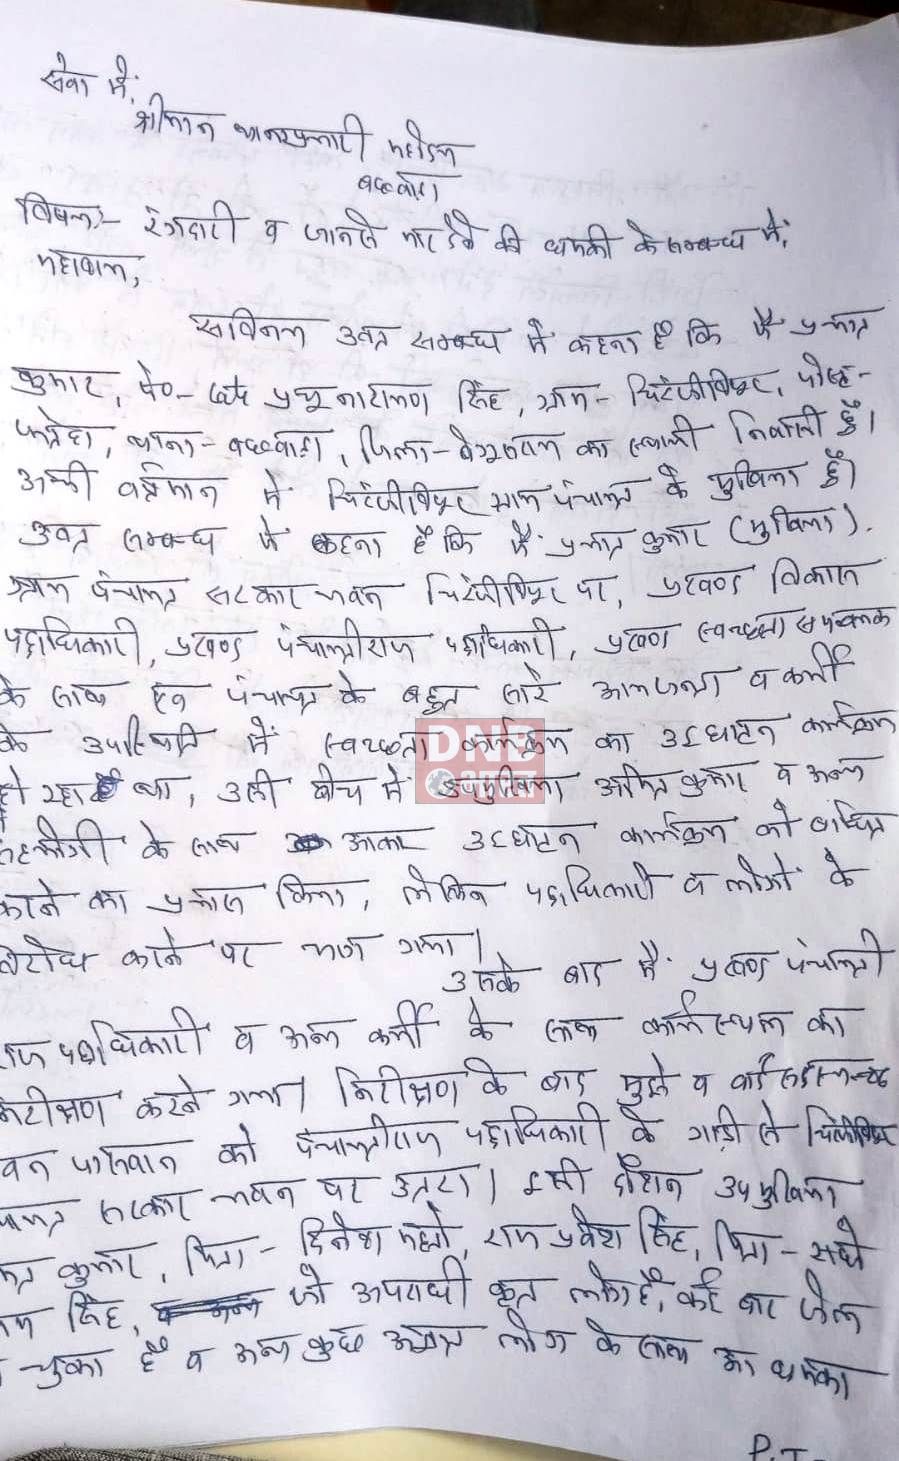 सेवा में,
श्रीमान थानाप्रभारी महोदय
बछवाड़ा
विषय:- रंगदारी व जानसे मार देने की धमकी के सम्बन्ध में,
महाशय,
सविनय उक्त सम्बन्ध में कहना है कि मैं प्रभात
कुमार, पे०- Late प्रभु नारायण सिंह, ग्राम- चिरंजीवीपुर, पोस्ट-
फतेहा, थाना- बछवाड़ा, जिला- बेगूसराय का स्थायी निवासी हूँ।
अभी वर्तमान में चिरंजीवीपुर ग्राम पंचायत के मुखिया हूँ।
उक्त सम्बन्ध में कहना है कि मैं प्रभात कुमार (मुखिया).
ग्राम पंचायत सरकार भवन चिरंजीवीपुर पर, प्रखण्ड विकास
पदाधिकारी, प्रखण्ड पंचायतीराज पदाधिकारी, प्रखण्ड स्वच्छता समन्वयक
के साथ एवं पंचायत के बहुत सारे आमजनता व कर्मी
के उपस्थिति में स्वच्छता कार्यक्रम का उदघाटन कार्यक्रम
हो रहा था, उसी बीच में उपमुखिया अमित कुमार व अन्य
सहयोगी के साथ आकर उदघाटन कार्यक्रम को बाधित
करने का प्रयास किया, लेकिन पदाधिकारी व लोगों के
विरोध करने पर भाग गया।
उसके बाद मैं प्रखण्ड पंचायती
राज पदाधिकारी व अन्य कर्मी के साथ कार्य स्थल का
निरीक्षण करने गया। निरीक्षण के बाद मुझे व वार्ड सदस्य
पासवान को पंचायतीराज पदाधिकारी के गाड़ी से चिरंजीवीपुर
सरकार भवन पर उतरा। इसी दौरान उप मुखिया
कुमार, पिता- दिनेश महतो, राम प्रवेश सिंह, पिता- राधे
सिंह, जो अपराधी कृत लोग है, कई बार जेल
चुका है व अन्य कुछ अज्ञात लोग के साथ आ धमका
P.T
DNB
भारत